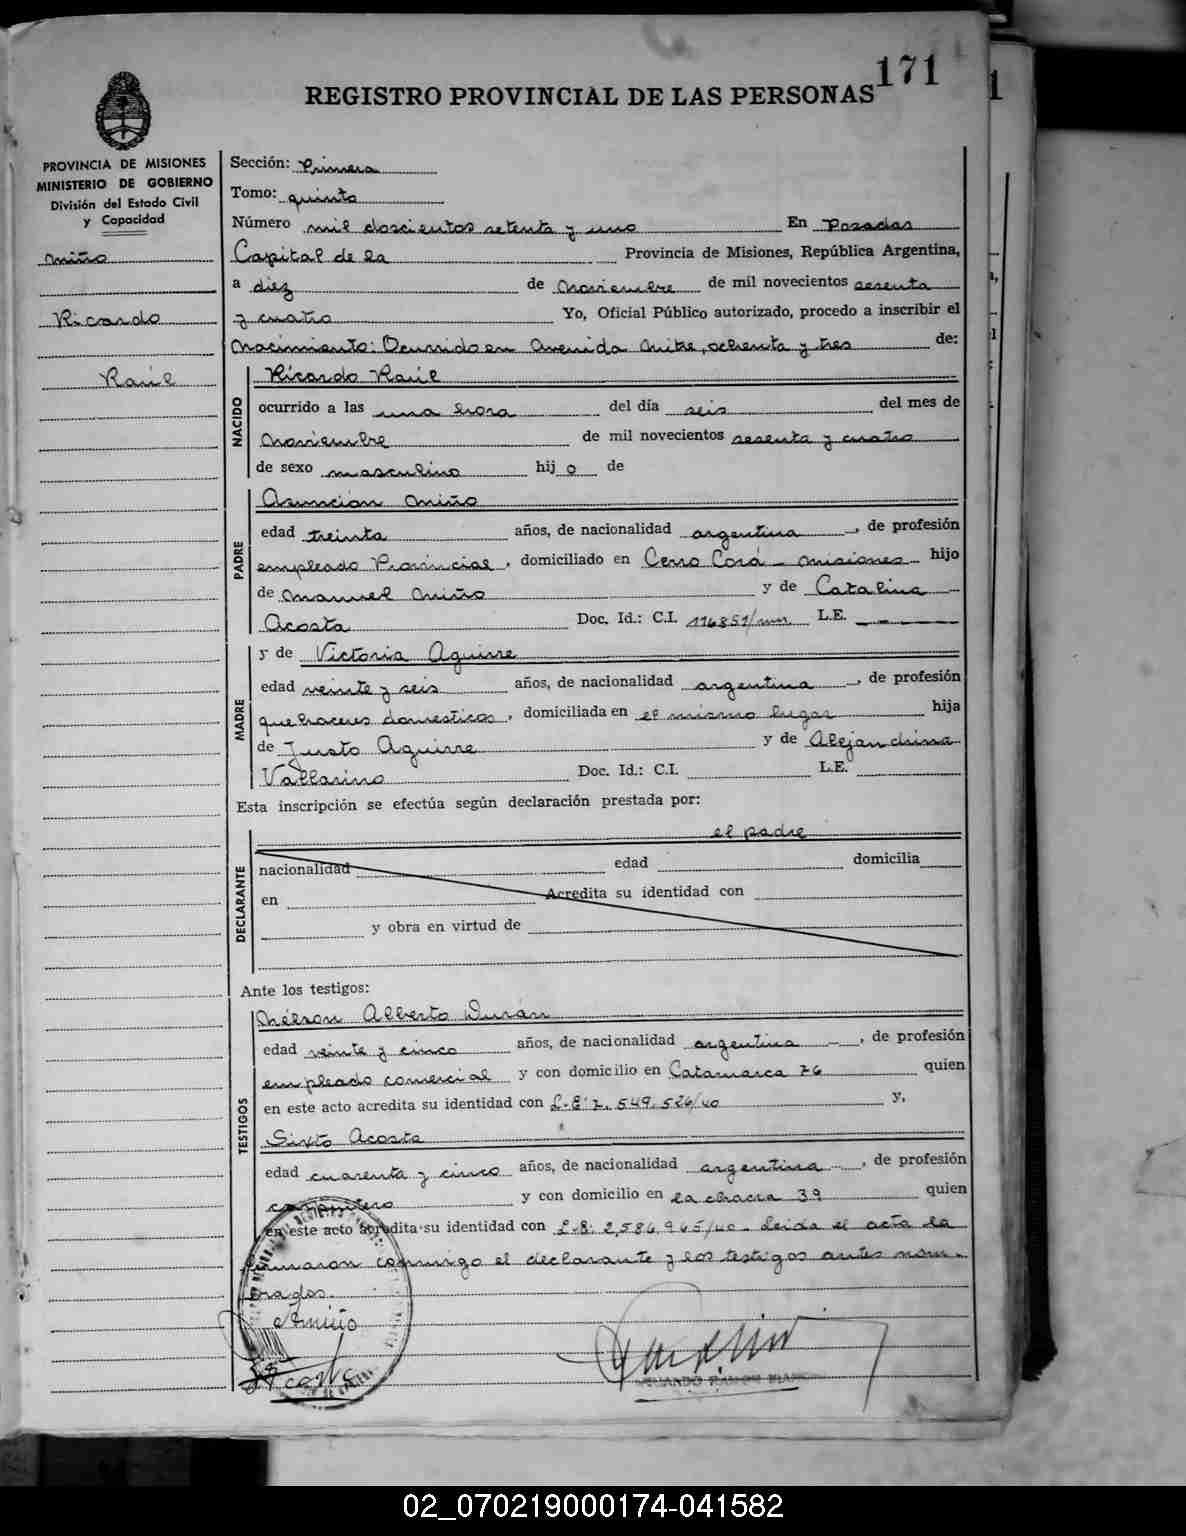 171
REGISTRO PROVINCIAL DE LAS PERSONAS
PROVINCIA DE MISIONES
MINISTERIO DE GOBIERNO
División del Estado Civil
y Capacidad
Miño
Ricardo
Raúl
Sección: Primera
Tomo: quinto
Número mil doscientos setenta y uno En Posadas
Capital de la Provincia de Misiones, República Argentina,
a diez de Noviembre de mil novecientos sesenta
y cuatro Yo, Oficial Público autorizado, procedo a inscribir el
Nacimiento: Ocurrido en Avenida Mitre, ochenta y tres de:
NACIDO
Ricardo Raúl
ocurrido a las una hora del día seis del mes de
Noviembre de mil novecientos sesenta y cuatro
de sexo masculino hijo de
PADRE
Asunción Miño
edad treinta años, de nacionalidad argentina, de profesión
empleado Provincial, domiciliado en Cerro Corá - Misiones hijo
de Manuel Miño y de Catalina
Acosta Doc. Id.: C.I. 116851/ L.E. - - - -
MADRE
y de Victoria Aguirre
edad veinte y seis años, de nacionalidad argentina, de profesión
quehaceres domesticos, domiciliada en el mismo lugar hija
de Justo Aguirre y de Alejandrina
Vallarino Doc. Id.: C.I. L.E.
Esta inscripción se efectúa según declaración prestada por:
el padre
DECLARANTE
nacionalidad edad domicilia
en Acredita su identidad con
y obra en virtud de
Ante los testigos:
TESTIGOS
Nélson Alberto Durán
edad veinte y cinco años, de nacionalidad argentina, de profesión
empleado comercial y con domicilio en Catamarca 76 quien
en este acto acredita su identidad con L.E: 7.549.526/40 y,
Sixto Acosta
edad cuarenta y cinco años, de nacionalidad argentina, de profesión
carpintero y con domicilio en la chacra 39 quien
en este acto acredita su identidad con L.E: 2,584,965/40. Leida el acta la
firmaron conmigo el declarante y los testigos antes nom-
brados.
A Miño
Acosta
02_070219000174-041582